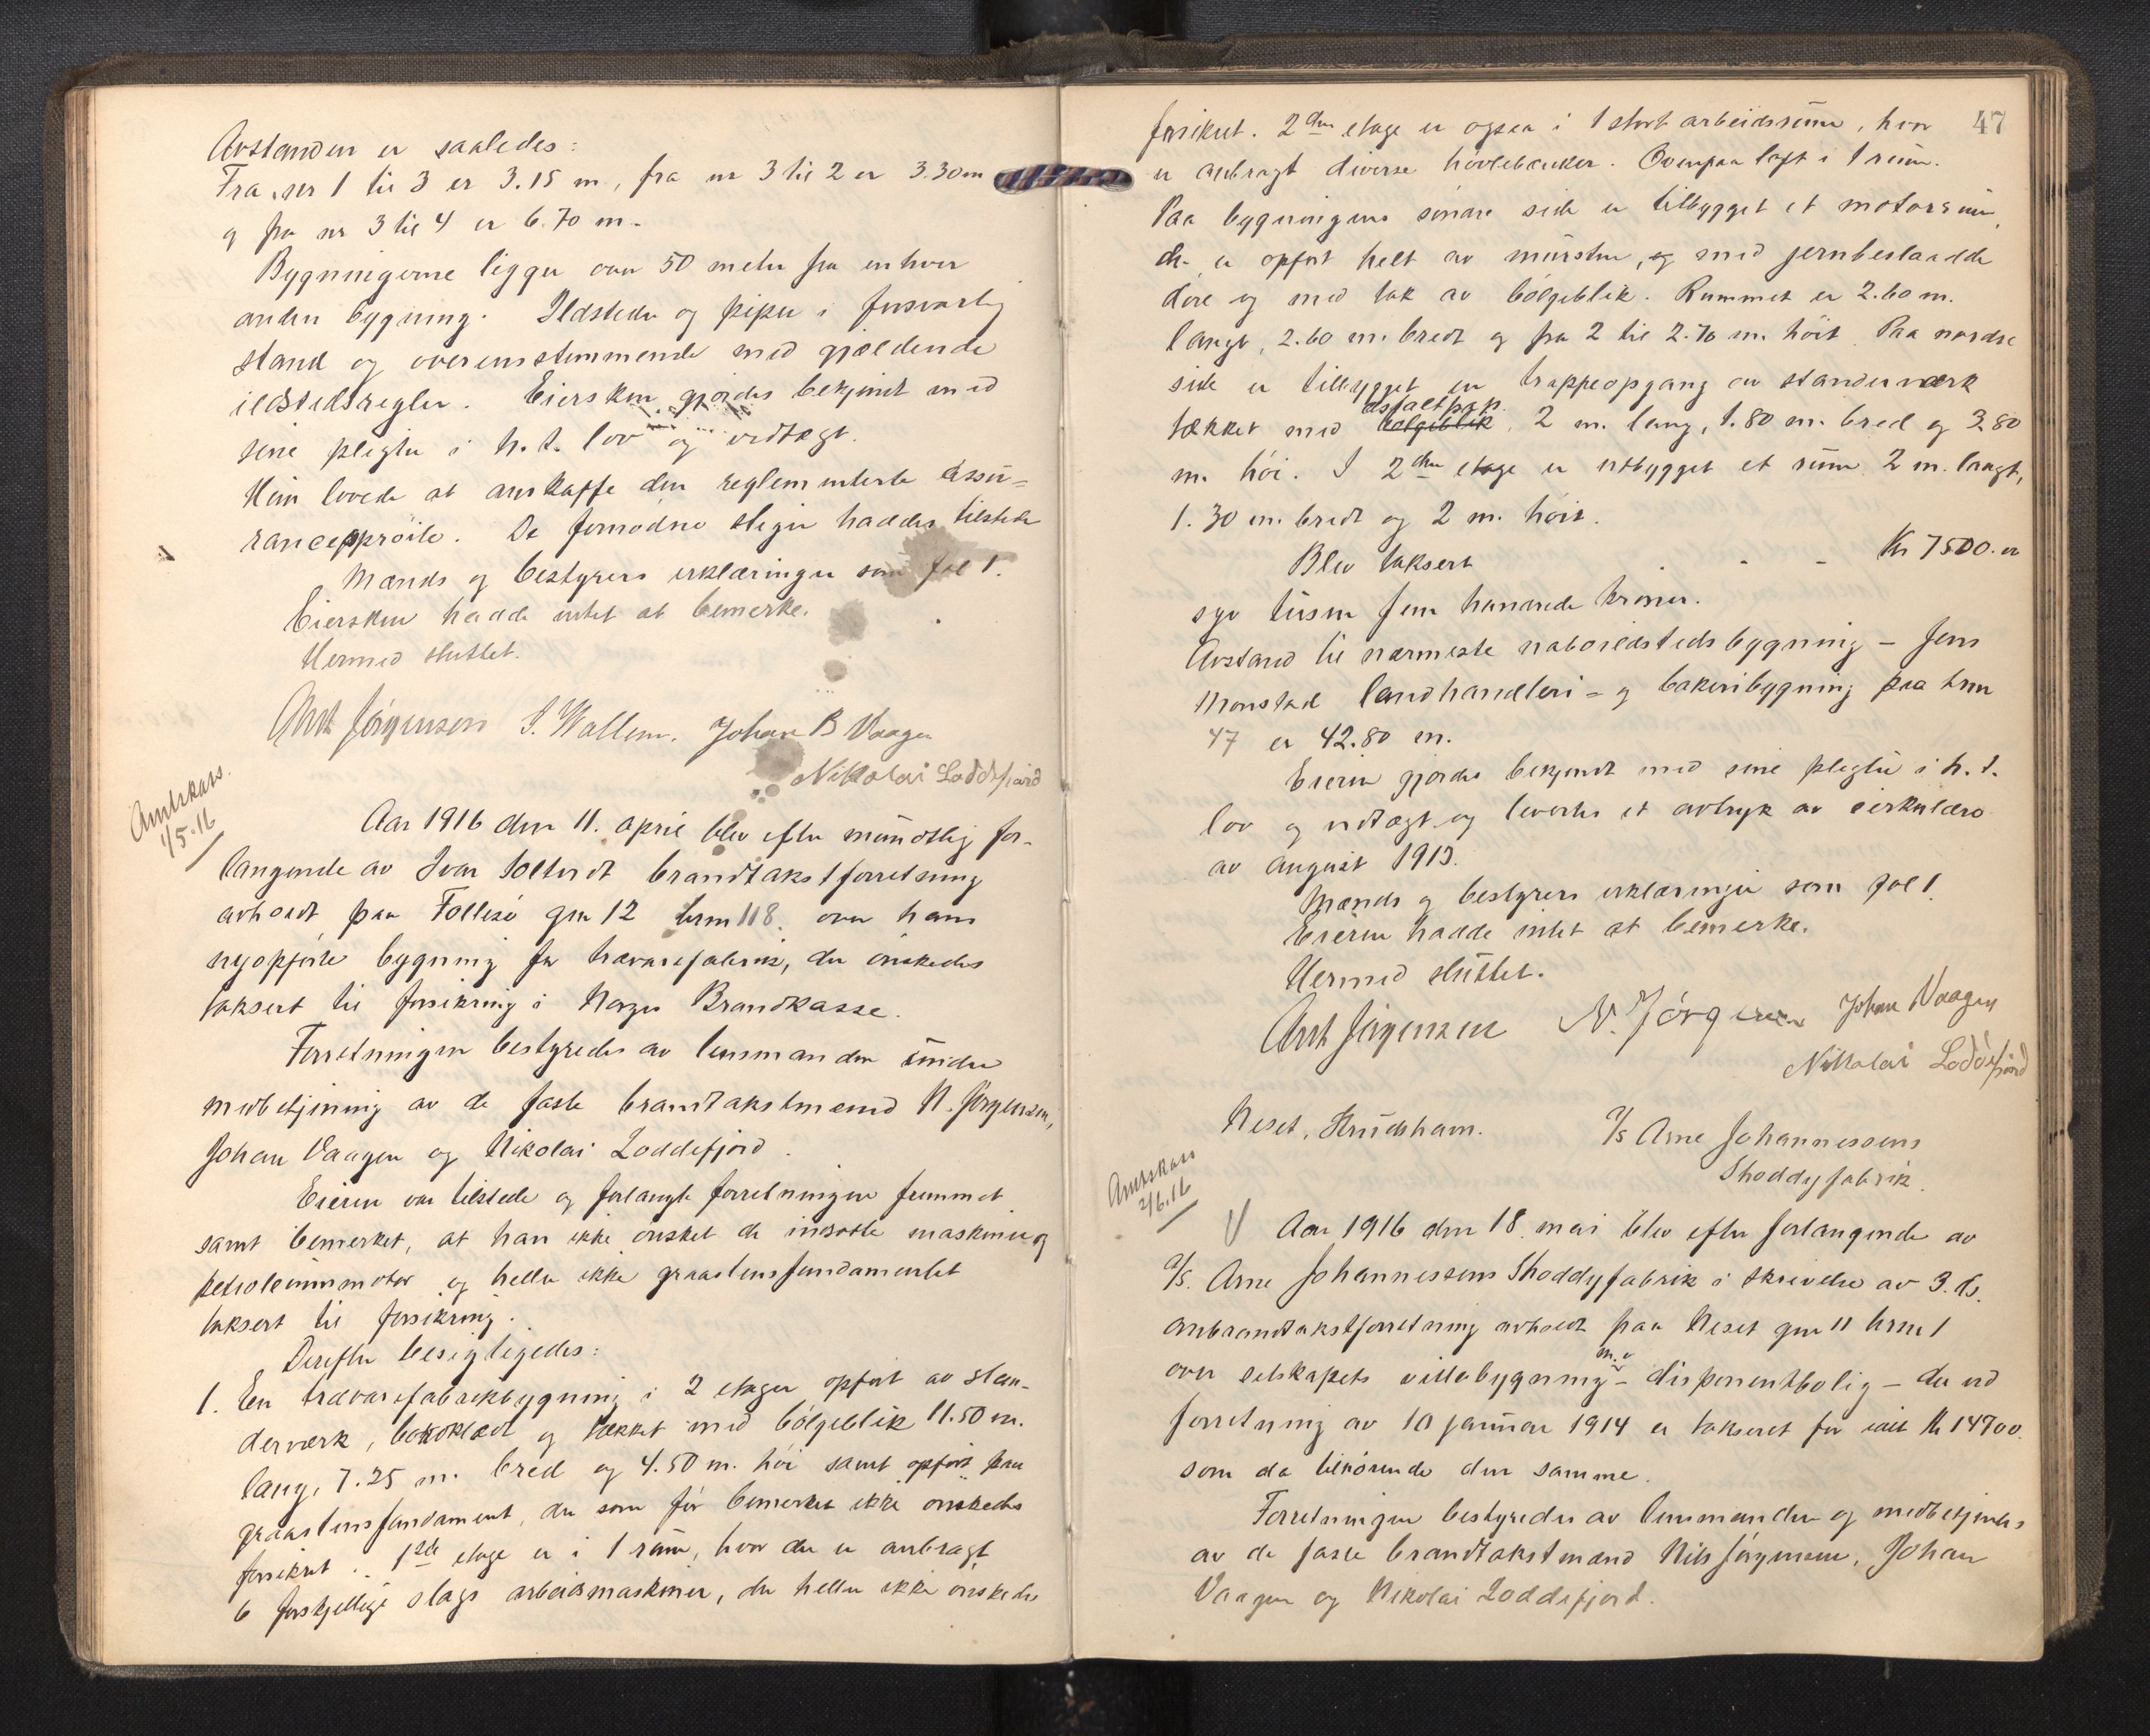 Avstanden er saaledes:
Fra nr 1 til 3 er 3.15 m, fra nr 3 til 2 er 3.30 m
og fra nr 3 til 4 er 6.70 m.
Bygningerne ligger over 50 meter fra enhver
anden bygning. Ildsteder og piper i forsvarlig
stand og overensstemmende med gjældende
ildstedsregler. Eiersken gjordes bekjendt med
sine pligter i h. t. lov og vedtægt.
Hun lovede at anskaffe den reglementerte assu=
rancesprøite. De fornødne stiger haddes tilstede
Mænds og bestyrers erklæringer som fol 1.
Eiersken hadde intet at bemerke.
Hermed sluttet.
Anth Jørgensen J. Wallem. Johan B Vaagen
Nikolai Loddefjord
Amtskass.
1/5.16
Aar 1916 den 11. april blev efter mundtlig for-
langende av Ivar Soltvedt brandtakstforretning
avholdt paa Follesø gnr 12 brnr 118. over hans
nyopførte bygning for trævarefabrik, der ønskedes
taksert til forsikring i Norges Brandkasse.
Forretningen bestyredes av lensmanden under
medbetjening av de faste brandtakstmænd N. Jørgensen,
Johan Vaagen og Nikolai Loddefjord.
Eieren var tilstede og forlangte forretningen fremmet
samt bemerket, at han ikke ønsket de indsatte maskiner og
petroleummotor og heller ikke graastensfundamentet
taksert til forsikring.
Derefter besigtigedes:
1. En trævarefabrikbygning i 2 etager opført av stan-
derværk, bordklædt og tækket med bølgeblik 11.50 m.
lang, 7.25 m. bred og 4.50 m. høi samt opført paa
graastensfundament, der som før bemerket ikke ønskedes
forsikret. 1ste etage er i 1 rum, hvor der er anbragt
6 forskjellige slags arbeidsmaskiner, der heller ikke ønskedes
47
forsikret. 2den etage er ogsaa i 1 stort arbeidsrum, hvor
er anbragt diverse høvlebænker. Ovenpaa loft i 1 rum.
Paa bygningens søndre side er tilbygget et motorrum,
der er opført helt av mursten, og med jernbeslaadde
døre og med tak av bølgeblik. Rummet er 2.60 m.
langt, 2.60 m. bredt og fra 2 til 2.70 m. høit. Paa nordre
side er tilbygget en trappeopgang av standerværk
asfaltpap.
tækket med bølgeblik, 2 m. lang, 1.80 m. bred og 3.80
m. høi. I 2den etage er utbygget et rum 2 m. langt,
1.30 m. bredt og 2 m. høit.
Blev taksert - - Kr 7500. er
syv tusen fem hundrede kroner.
Avstand til nærmeste naboildstedsbygning - Jens
Monstad landhandleri- og bakeribygning paa brnr
47 er 42.80 m.
Eieren gjordes bekjendt med sine pligter i h. t.
lov og vedtægt og levertes et avtryk av cirkulære
av august 1913.
Mænds og bestyrers erklæringer som fol 1.
Eieren hadde intet at bemerke.
Hermed sluttet.
Anth Jørgensen N. Jørgensen Johan Vaagen
Nikolai Loddefjord
Neset, Hrudshavn. A/S Arne Johannessens
Shoddyfabrik.
Amtskass
2/6.16
Aar 1916 den 18. mai blev efter forlangende av
A/S. Arne Johannessens Shoddyfabrik i skrivelse av 3. ds.
ombrandtakstforretning avholdt paa Neset gnr 11 brnr 1
m.v.
over selskapets villabygning - disponentbolig - der ved
forretning av 10 januar 1914 er takseret for ialt Kr 14700.
som da tilhørende den samme.
Forretningen bestyredes av lensmanden og medbetjentes
av de faste brandtakstmænd Nils Jørgensen, Johan
Vaagen og Nikolai Loddefjord.